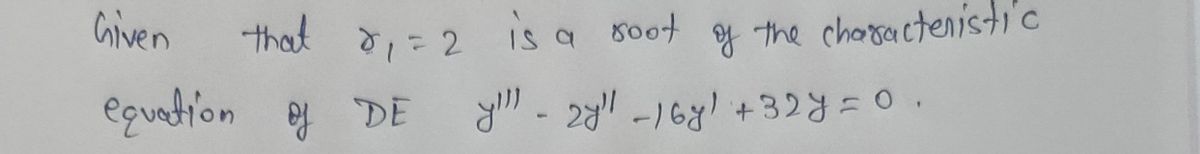 Given that r₁ = 2 is a root of the characteristic
equation of DE y''' - 2y'' - 16y' + 32y = 0.